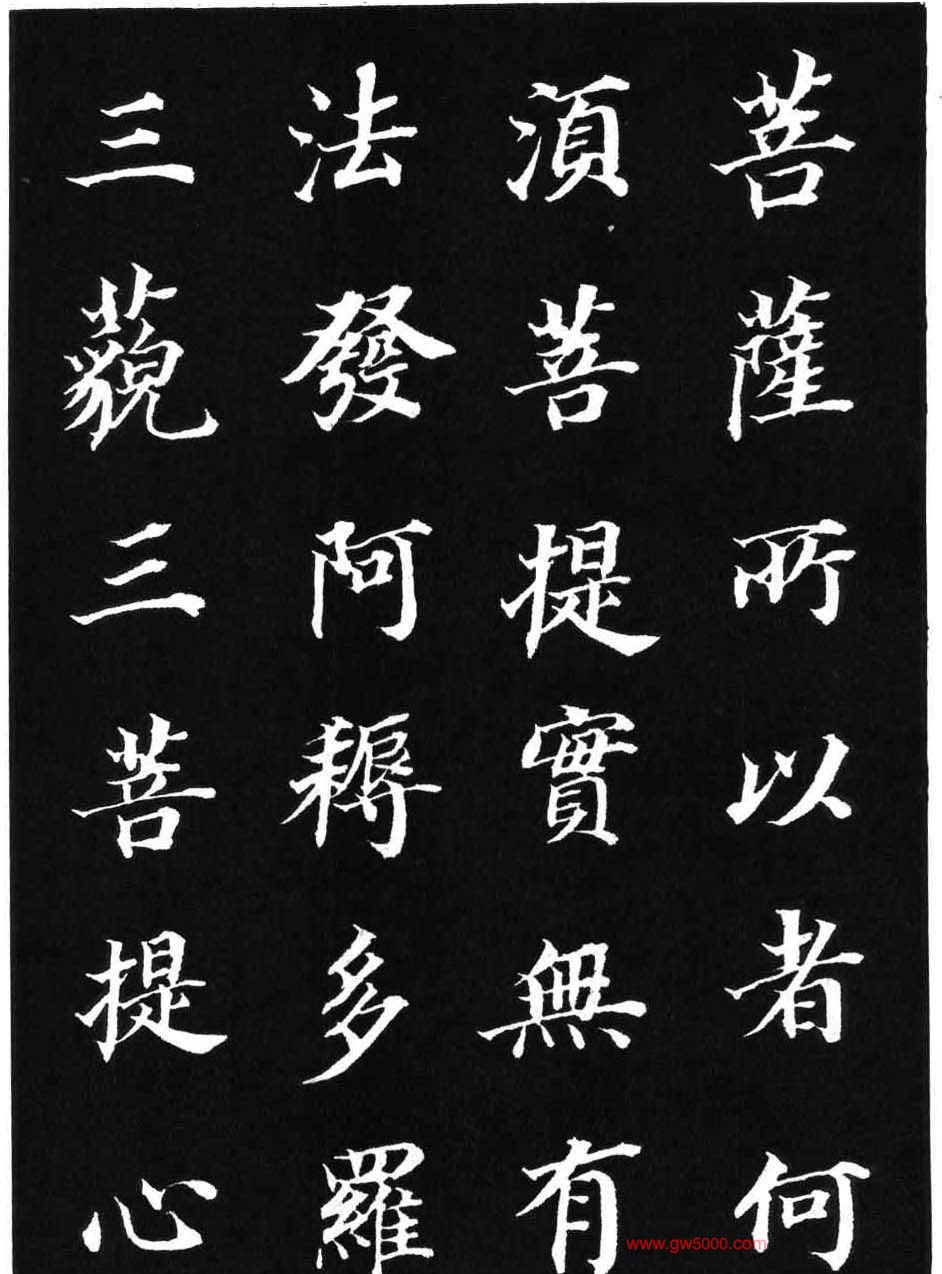 菩薩所以者何
湏菩提實無有
法發阿耨多羅
三藐三菩提心
www.gw5000.com